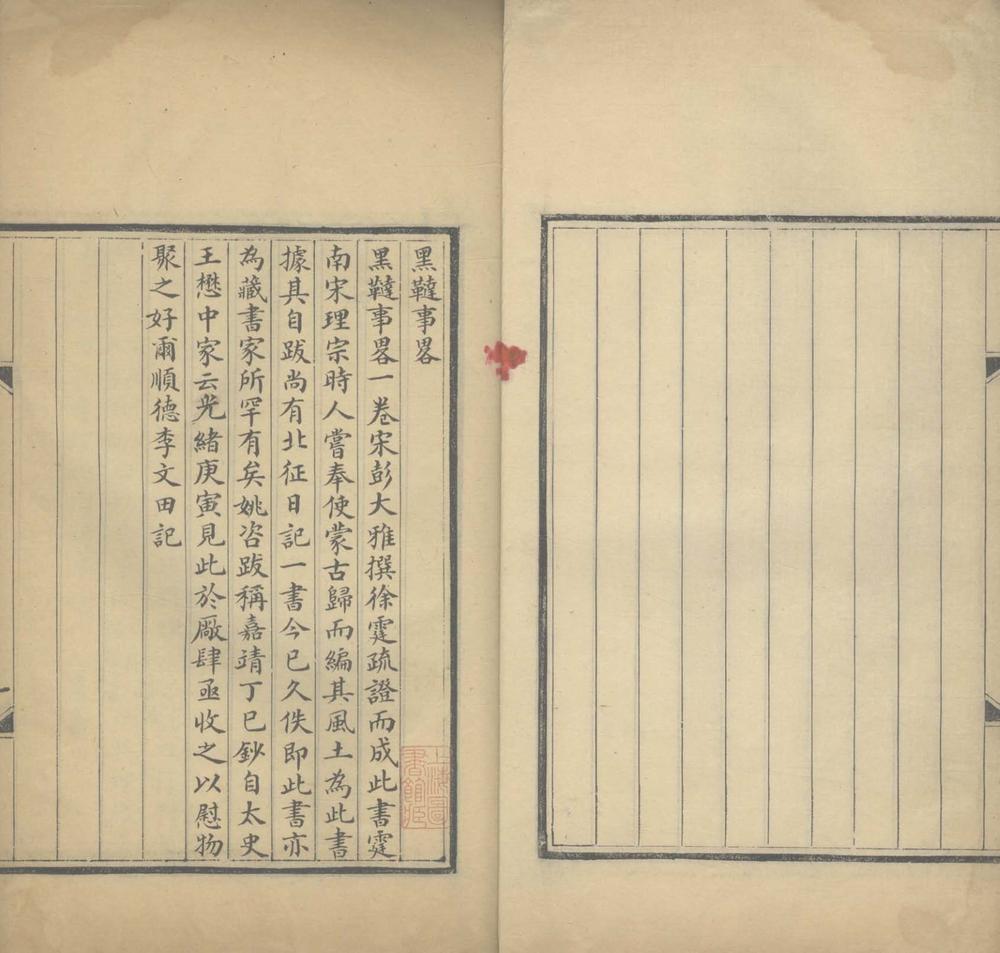 黑韃事畧
黑韃事畧一卷宋彭大雅撰徐霆疏證而成此書霆
南宋理宗時人嘗奉使蒙古歸而編其風土為此書
據其自跋尚有北征日記一書今已久佚即此書亦
為藏書家所罕有矣姚咨跋稱嘉靖丁巳鈔自太史
王懋中家云光緒庚寅見此於廠肆亟收之以慰物
聚之好爾順德李文田記
上海圖
書館藏